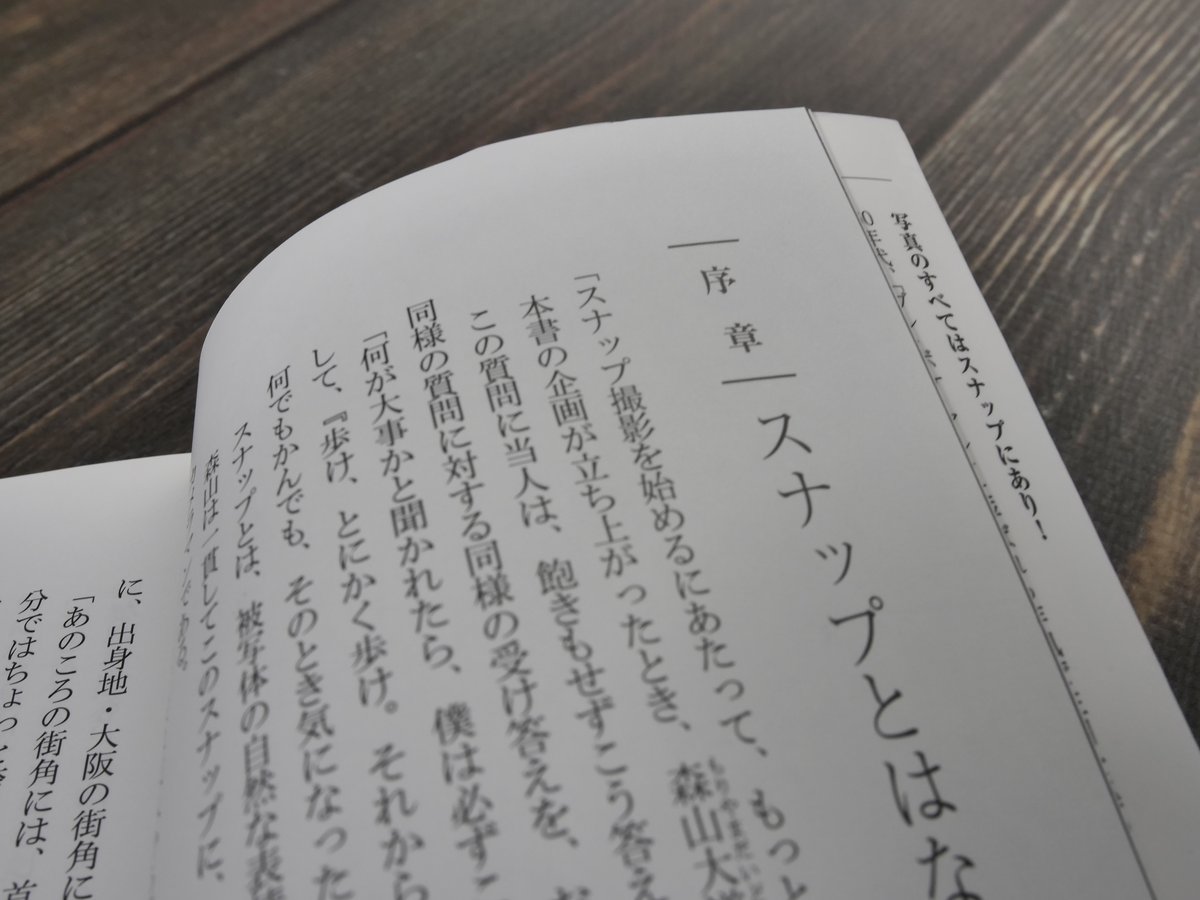 写真のすべてはスナップにあり!
序章
スナップとはな
「スナップ撮影を始めるにあたって、もっと
本書の企画が立ち上がったとき、森山大
もりやまだい
この質問に当人は、飽きもせずこう答え
同様の質問に対する同様の受け答えを、お
「何が大事かと聞かれたら、僕は必ずこ
して、『歩け、とにかく歩け。それから
何でもかんでも、そのとき気になった
スナップとは、被写体の自然な表
森山は一貫してこのスナップに、
に、出身地・大阪の街角に
「あのころの街角には、首
分ではちょっと